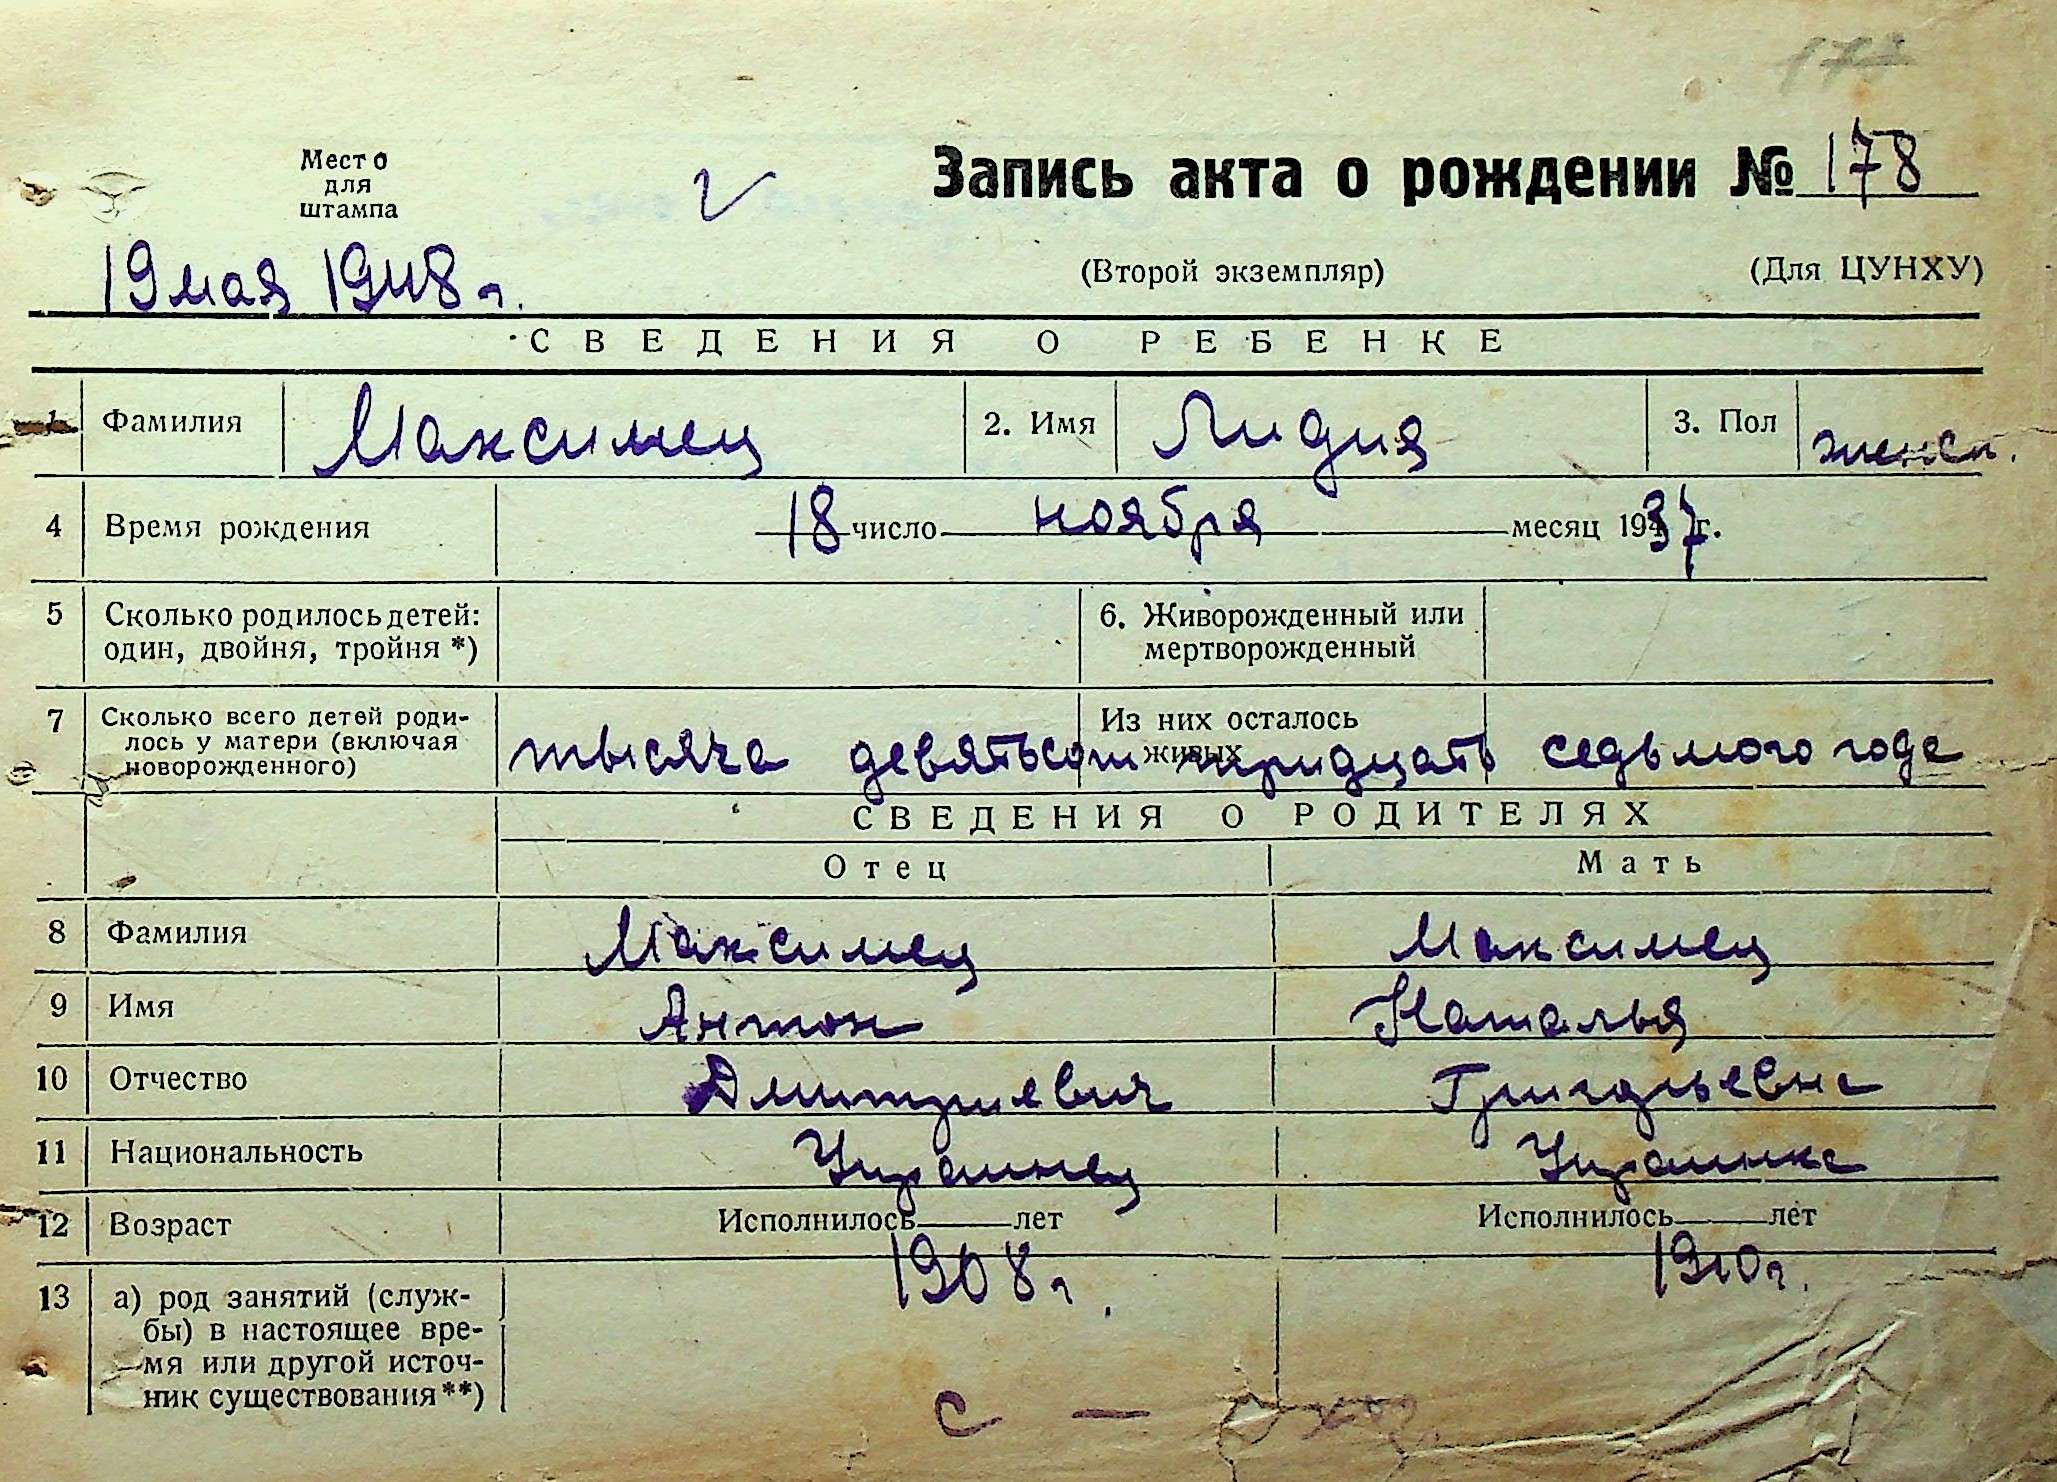 178
Место
для
штампа
Запись акта о рождении № 178
19 мая 1948 г.
(Второй экземпляр) (Для ЦУНХУ)
СВЕДЕНИЯ О РЕБЕНКЕ
1 Фамилия Максимец 2. Имя Лидия 3. Пол женск.
4 Время рождения 18 число ноября месяц 1937 г.
5 Сколько родилось детей: один, двойня, тройня *) 6. Живорожденный или мертворожденный
7 Сколько всего детей родилось у матери (включая новорожденного) Из них осталось живых
тысяча девятьсот тридцать седьмого года
СВЕДЕНИЯ О РОДИТЕЛЯХ
Отец Мать
8 Фамилия Максимец Максимец
9 Имя Антон Наталья
10 Отчество Дмитриевич Григорьевна
11 Национальность Украинец Украинка
12 Возраст Исполнилось лет Исполнилось лет
1908 г. 1910 г.
13 а) род занятий (служ-
бы) в настоящее вре-
мя или другой источ-
ник существования**)
с —